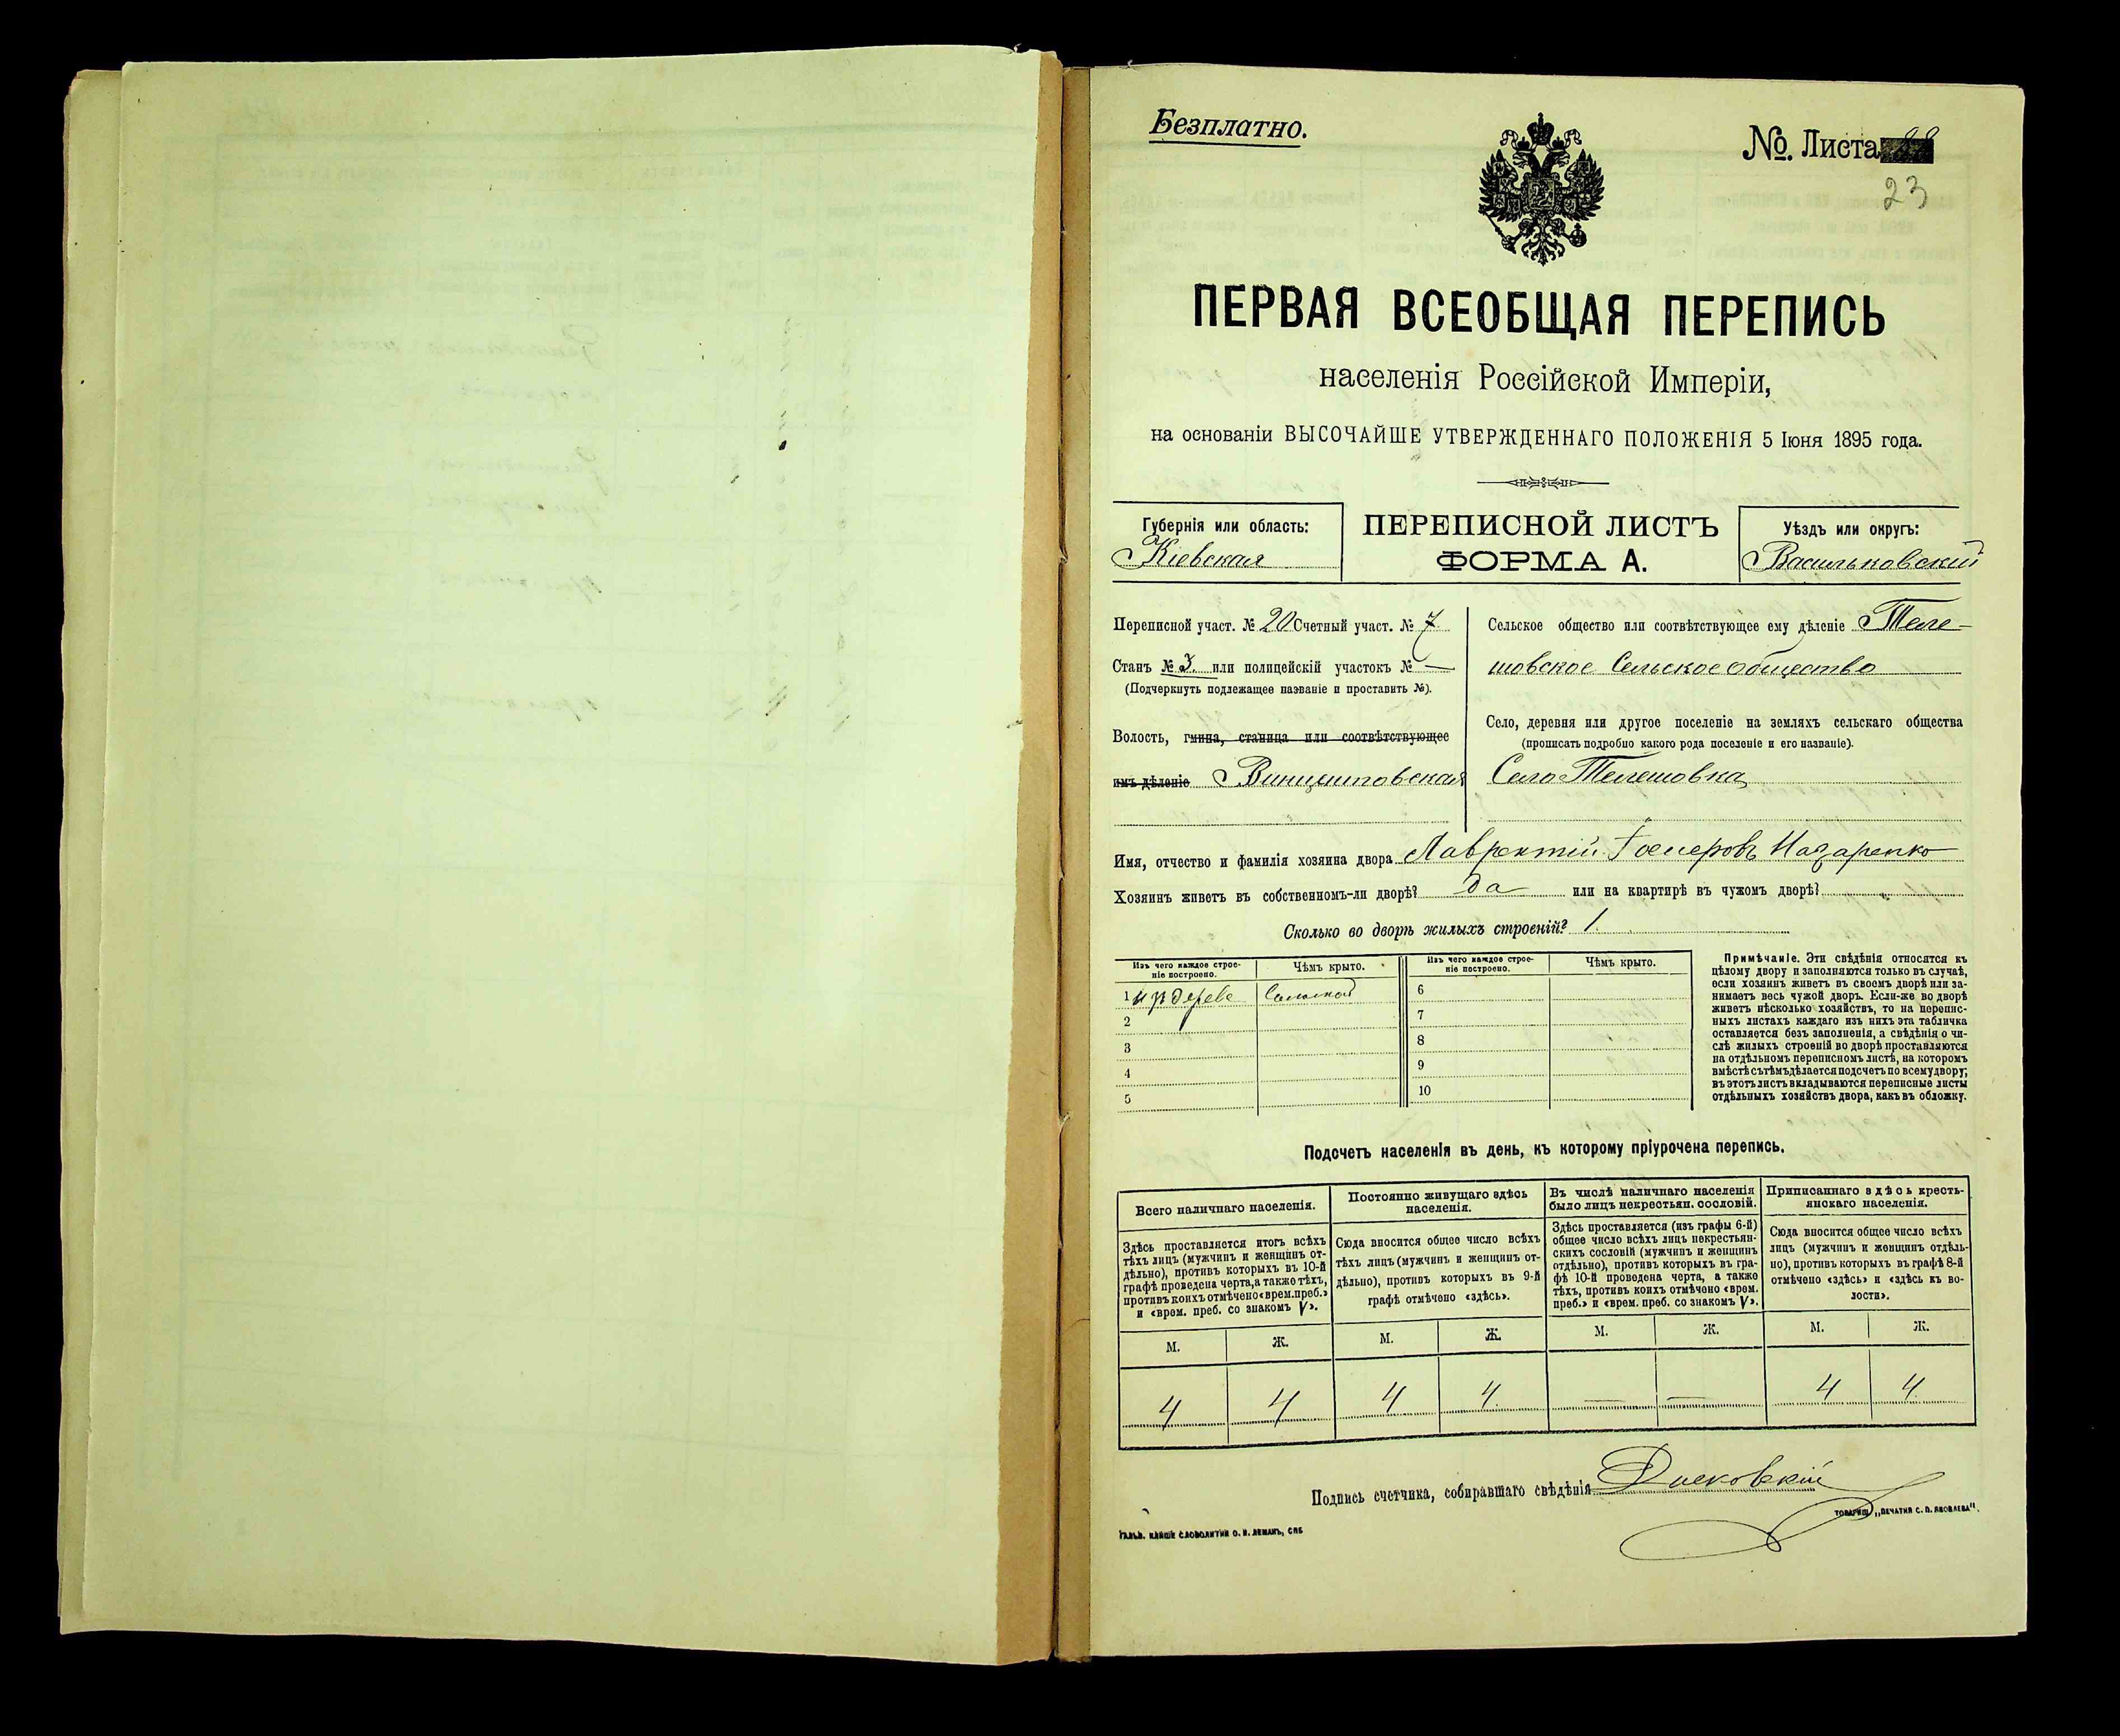 Безплатно.
№. Листа
23
ПЕРВАЯ ВСЕОБЩАЯ ПЕРЕПИСЬ
населенія Россійской Имперіи,
на основаніи ВЫСОЧАЙШЕ УТВЕРЖДЕННАГО ПОЛОЖЕНІЯ 5 Іюня 1895 года.
Губернія или область:
Кіевская
ПЕРЕПИСНОЙ ЛИСТЪ
ФОРМА А.
Уѣздъ или округъ:
Васильковскій
Переписной участ. № 20 Счетный участ. № 7
Станъ № 3. или полицейскій участокъ № —
(Подчеркнуть подлежащее названіе и проставить №).
Волость, гмина, станица или соотвѣтствующее
имъ дѣленіе Винцентовская
Сельское общество или соотвѣтствующее ему дѣленіе Теле-
шовское Сельское общество
Село, деревня или другое поселеніе на земляхъ сельскаго общества
(прописать подробно какого рода поселеніе и его названіе).
Село Телешовка
Имя, отчество и фамилія хозяина двора Лаврентій Назаренко
Хозяинъ живетъ въ собственномъ-ли дворѣ? Да или на квартирѣ въ чужомъ дворѣ?
Сколько во дворѣ жилыхъ строеній? 1.
Изъ чего каждое строе-
ніе построено.
Чѣмъ крыто.
Изъ чего каждое строе-
ніе построено.
Чѣмъ крыто.
1 изъ дерева Соломой
2
3
4
5
6
7
8
9
10
Примѣчаніе. Эти свѣдѣнія относятся къ
цѣлому двору и заполняются только въ случаѣ,
если хозяинъ живетъ въ своемъ дворѣ или за-
нимаетъ весь чужой дворъ. Если-же во дворѣ
живетъ нѣсколько хозяйствъ, то на перепис-
ныхъ листахъ каждаго изъ нихъ эта табличка
оставляется безъ заполненія, а свѣдѣнія о чи-
слѣ жилыхъ строеній во дворѣ проставляются
на отдѣльномъ переписномъ листѣ, на которомъ
вмѣстѣ съ тѣмъ дѣлается подсчетъ по всему двору;
въ этотъ листъ вкладываются переписные листы
отдѣльныхъ хозяйствъ двора, какъ въ обложку.
Подсчетъ населенія въ день, къ которому пріурочена перепись.
Всего наличнаго населенія.
Здѣсь проставляется итогъ всѣхъ
тѣхъ лицъ (мужчинъ и женщинъ от-
дѣльно), противъ которыхъ въ 10-й
графѣ проведена черта, а также тѣхъ,
противъ коихъ отмѣчено «врем. преб.»
и «врем. преб. со знакомъ V».
М. Ж.
4 4
Постоянно живущаго здѣсь
населенія.
Сюда вносится общее число всѣхъ
тѣхъ лицъ (мужчинъ и женщинъ от-
дѣльно), противъ которыхъ въ 9-й
графѣ отмѣчено «здѣсь».
М. Ж.
4 4
Въ числѣ наличнаго населенія
было лицъ некрестьян. сословій.
Здѣсь проставляется (изъ графы 6-й)
общее число всѣхъ лицъ некрестьян-
скихъ сословій (мужчинъ и женщинъ
отдѣльно), противъ которыхъ въ гра-
фѣ 10-й проведена черта, а также
тѣхъ, противъ коихъ отмѣчено «врем.
преб.» и «врем. преб. со знакомъ V».
М. Ж.
— —
Приписаннаго здѣсь кресть-
янскаго населенія.
Сюда вносится общее число всѣхъ
лицъ (мужчинъ и женщинъ отдѣль-
но), противъ которыхъ въ графѣ 8-й
отмѣчено «здѣсь» и «здѣсь къ во-
лости».
М. Ж.
4 4
Подпись счетчика, собиравшаго свѣдѣнія
СЛОВОЛИТНИ О. И. ЛЕМАНЪ, СПБ
ТОВАРИЩ. „ПЕЧАТНЯ С. П. ЯКОВЛЕВА".